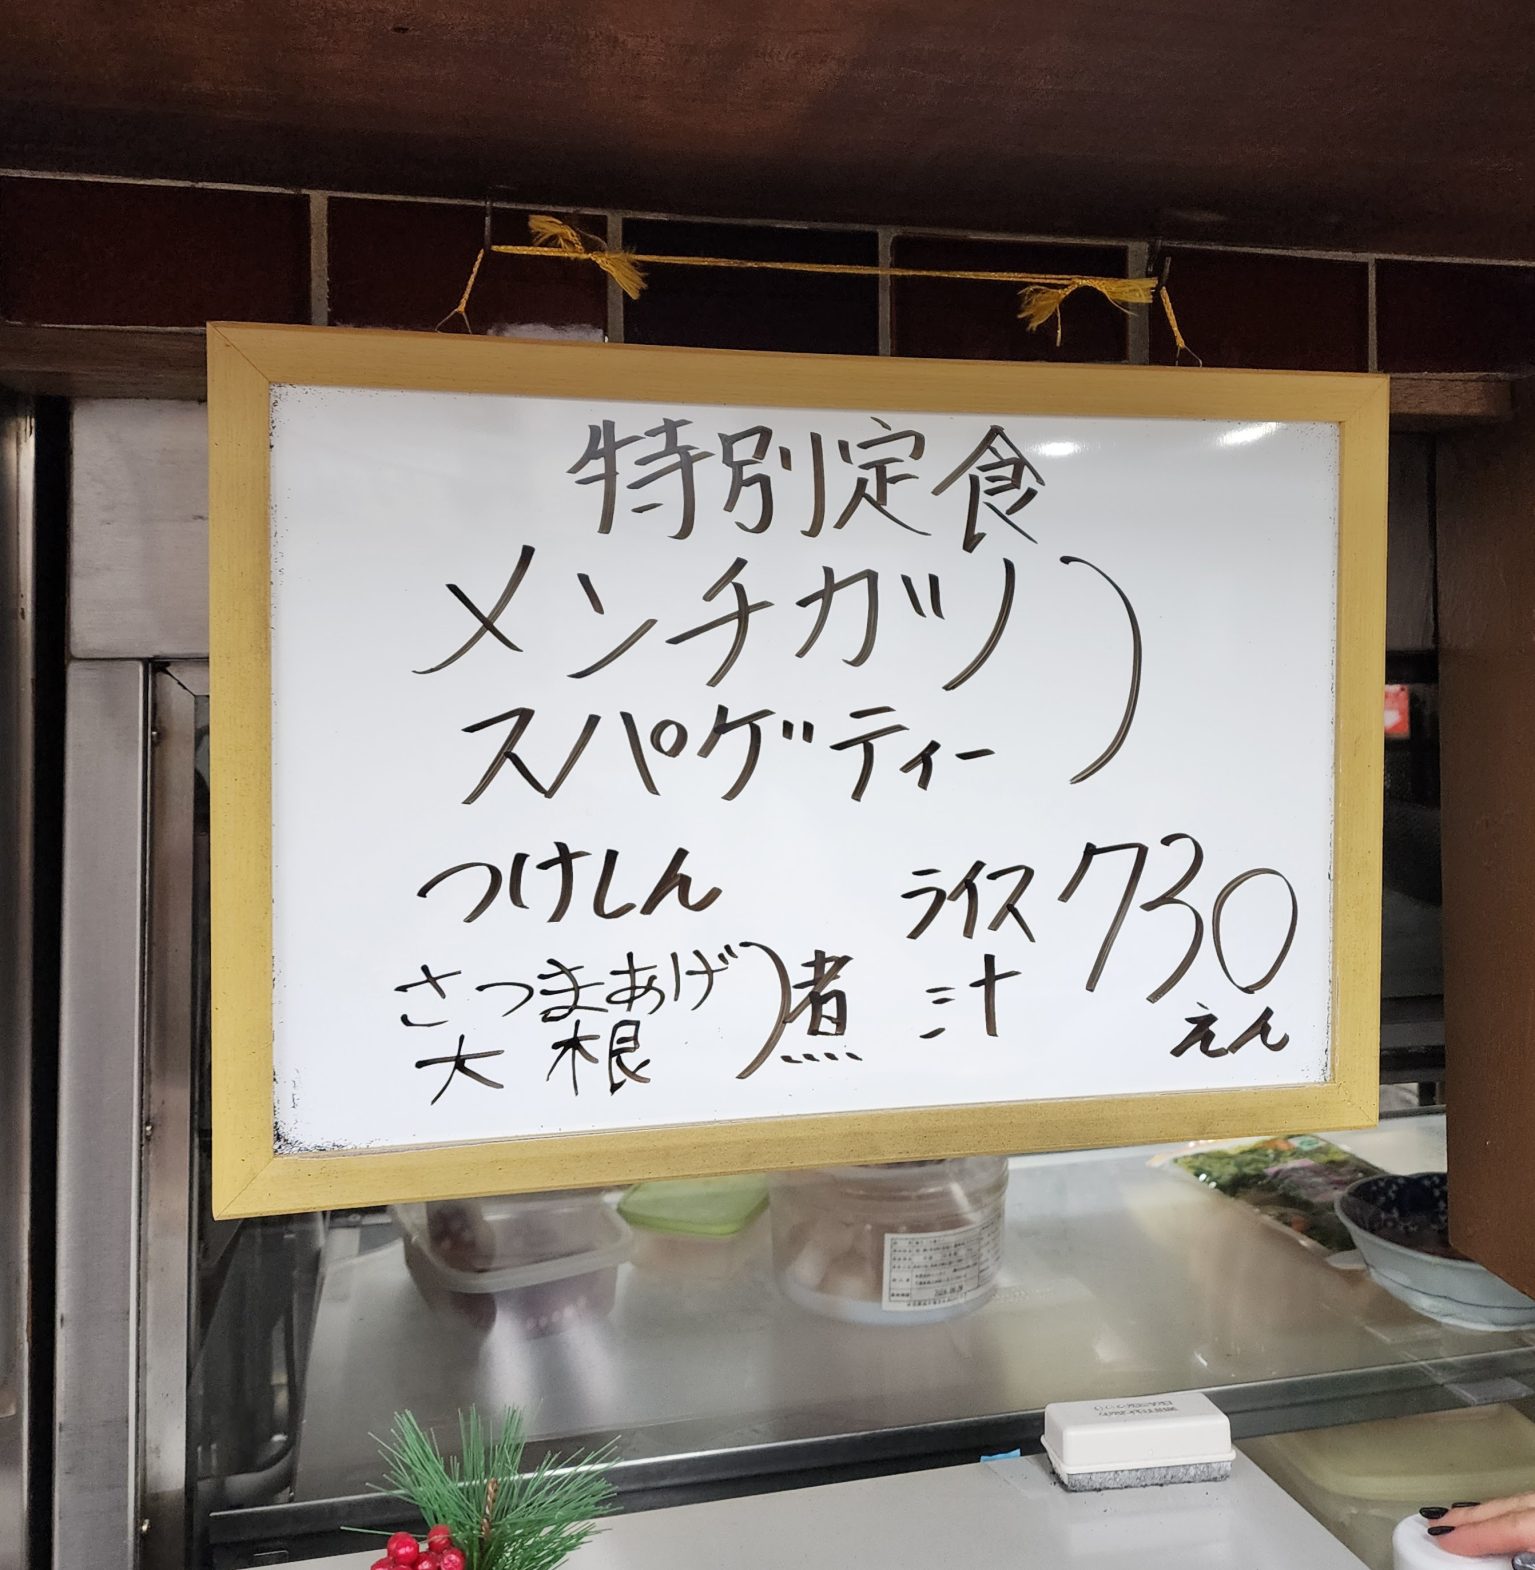 特別定食
メンチカツ
スパゲティー
つけしん
さつまあげ
大根
煮
ライス
汁
730
えん